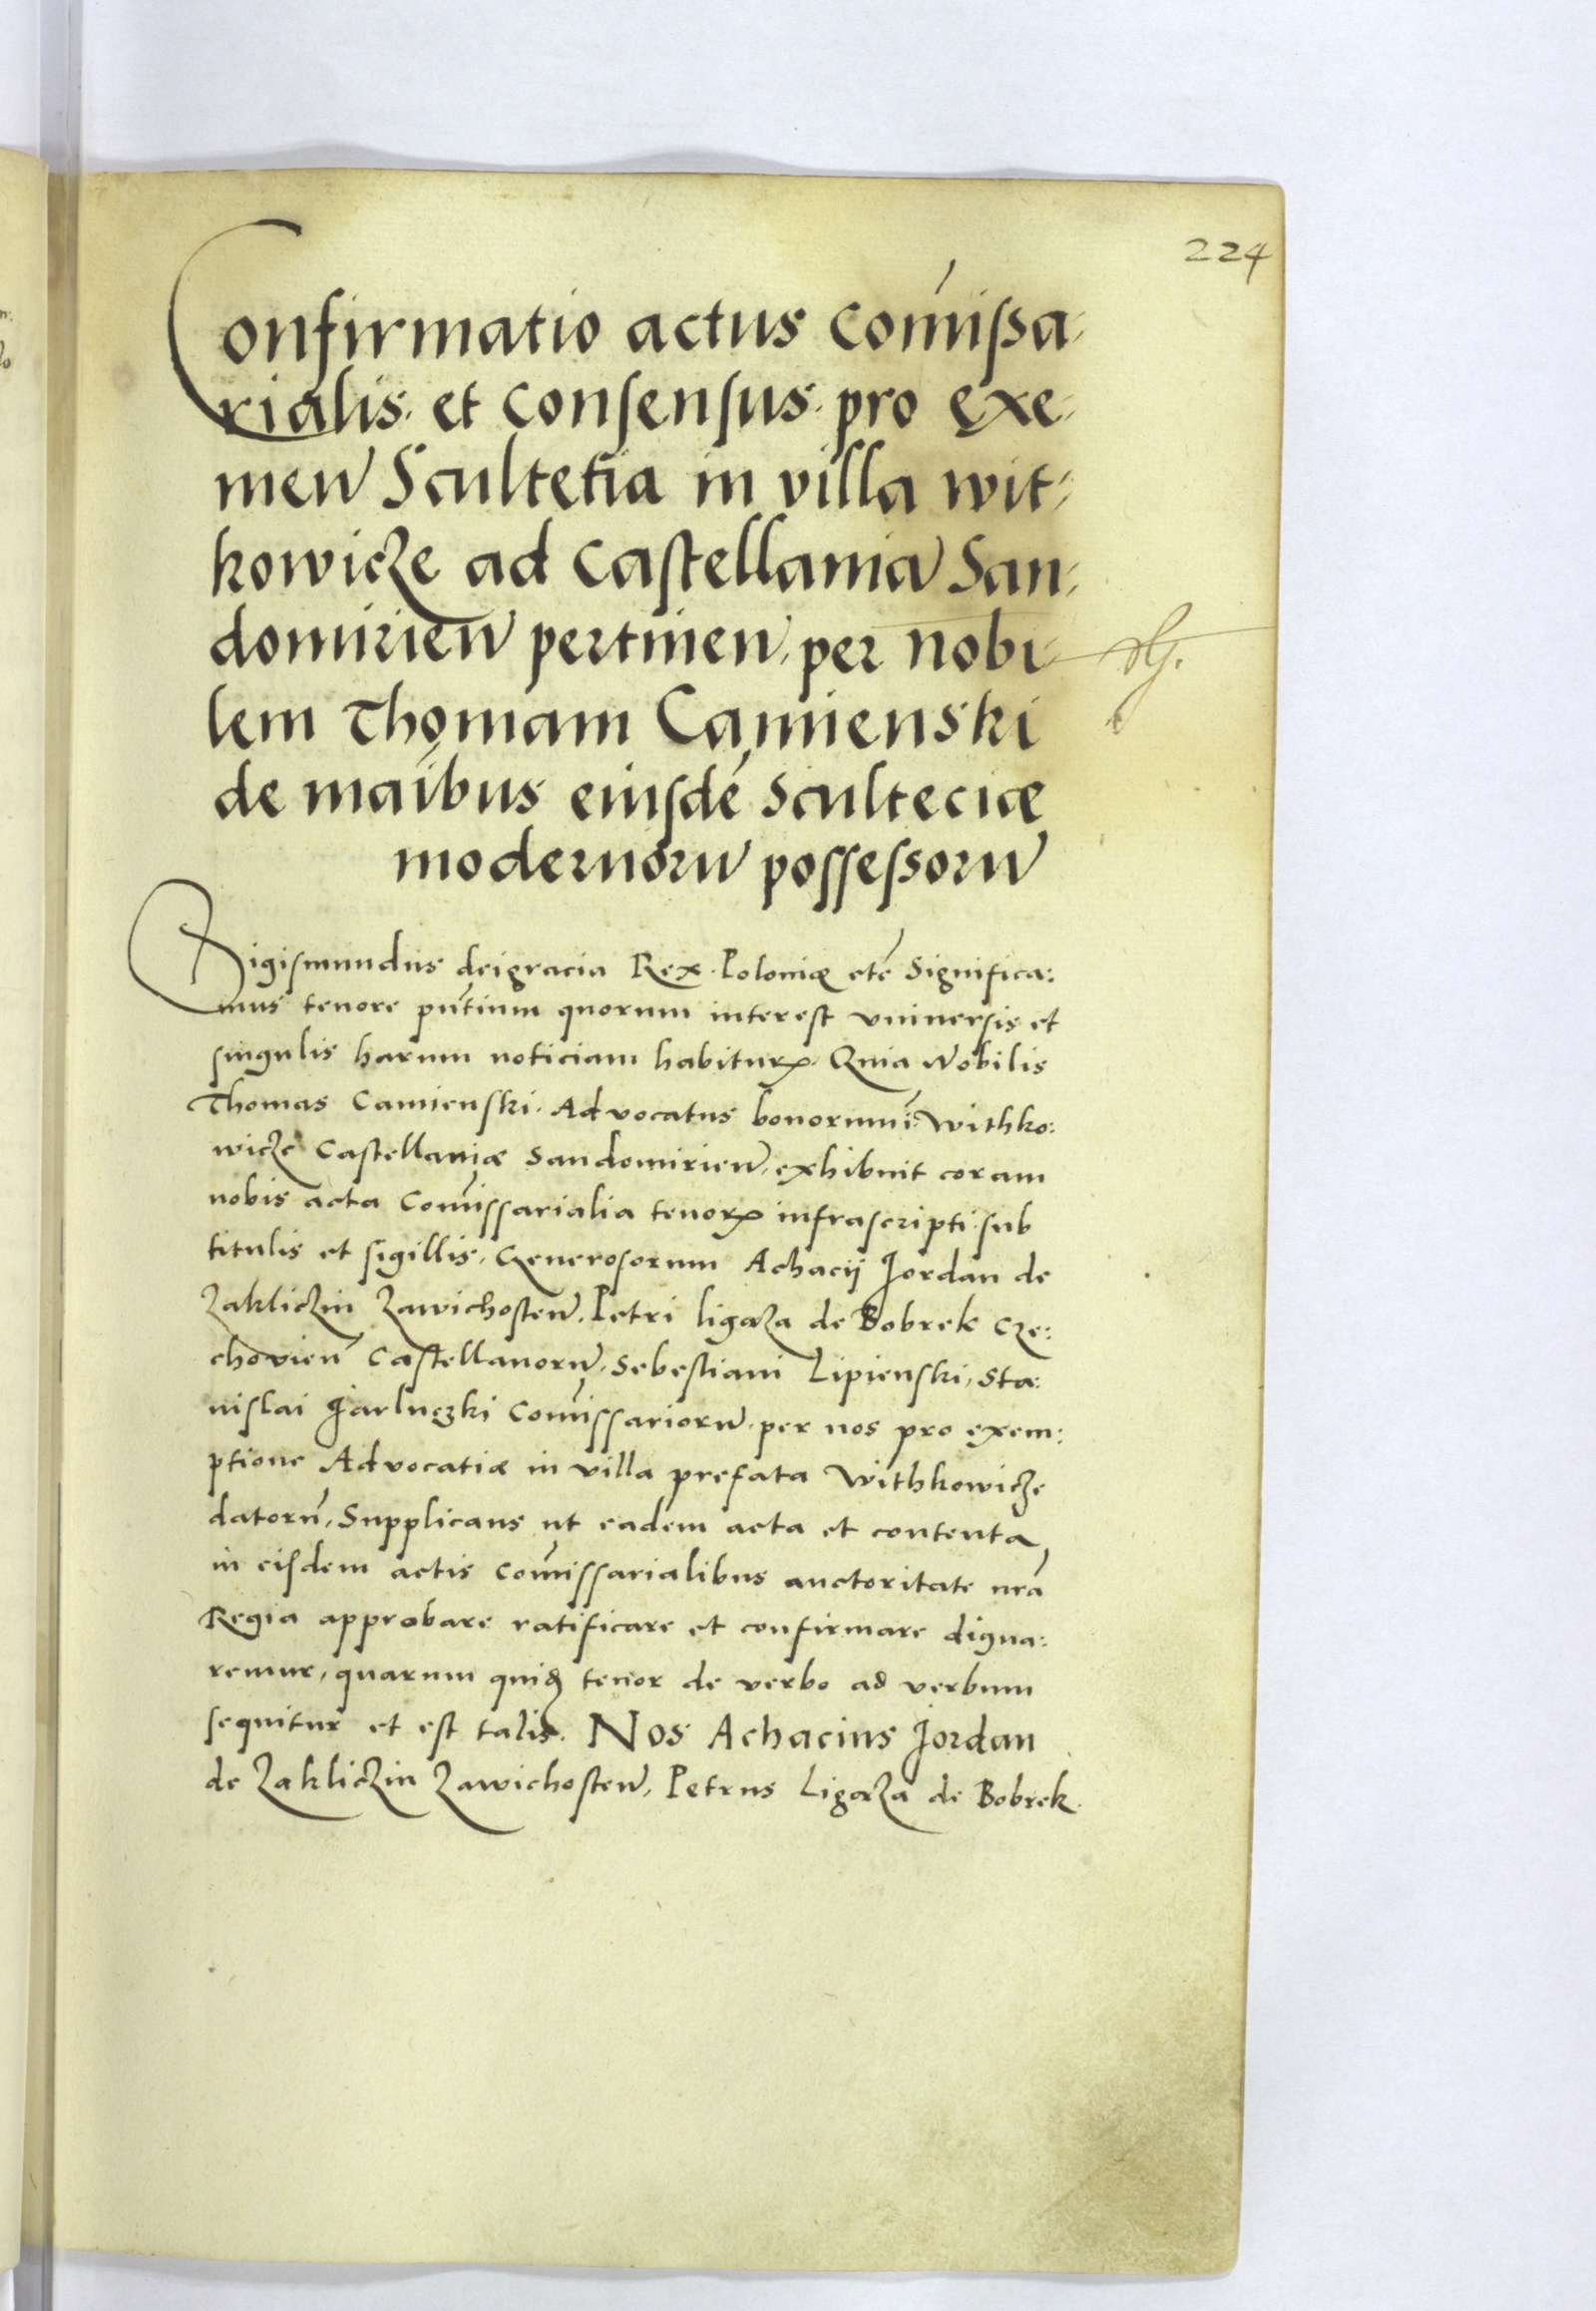 224
Confirmatio actus com̄issa-
rialis et consensus pro exe-
men̄ Scultetia in villa wit-
kowicze ad Castellaniā San-
domirien̄ pertinen̄, per nobi-
lem Thomam Camienski
de mai̅bus eiusdē Sculteciæ
modernorū possessorū
Sigismundus dei gracia Rex Poloniæ etc̄ Significa:
mus tenore pn̄tium quorum interest vniuersis et
singulis harum noticiam habiturꝭ. Quia Nobilis
Thomas Camienski Aduocatus bonorum in Withko:
wicze Castellaniæ Sandomirien̄, exhibuit coram
nobis acta Com̄issarialia tenorꝭ infrascripti sub
titulis et sigillis, Generosorum Achacij Jordan de
Zakliczin Zawichosten̄, Petri ligaza de Bobrek Cze:
chovien̄ Castellanorū, Sebestiani Lipienski, Sta:
nislai Jarluczki Com̄issariorū per nos pro exem:
ptione Aduocatiæ in villa prefata Withkowicze
datorū, Supplicans ut eadem acta et contenta
in eisdem actis Com̄issarialibus auctoritate nrā
Regia approbare ratificare et confirmare digna:
remur, quarum quidꝫ tenor de verbo ad verbum
sequitur et est talis. Nos Achacius Jordan
de Zakliczin Zawichosten̄, Petrus Ligaza de Bobrek